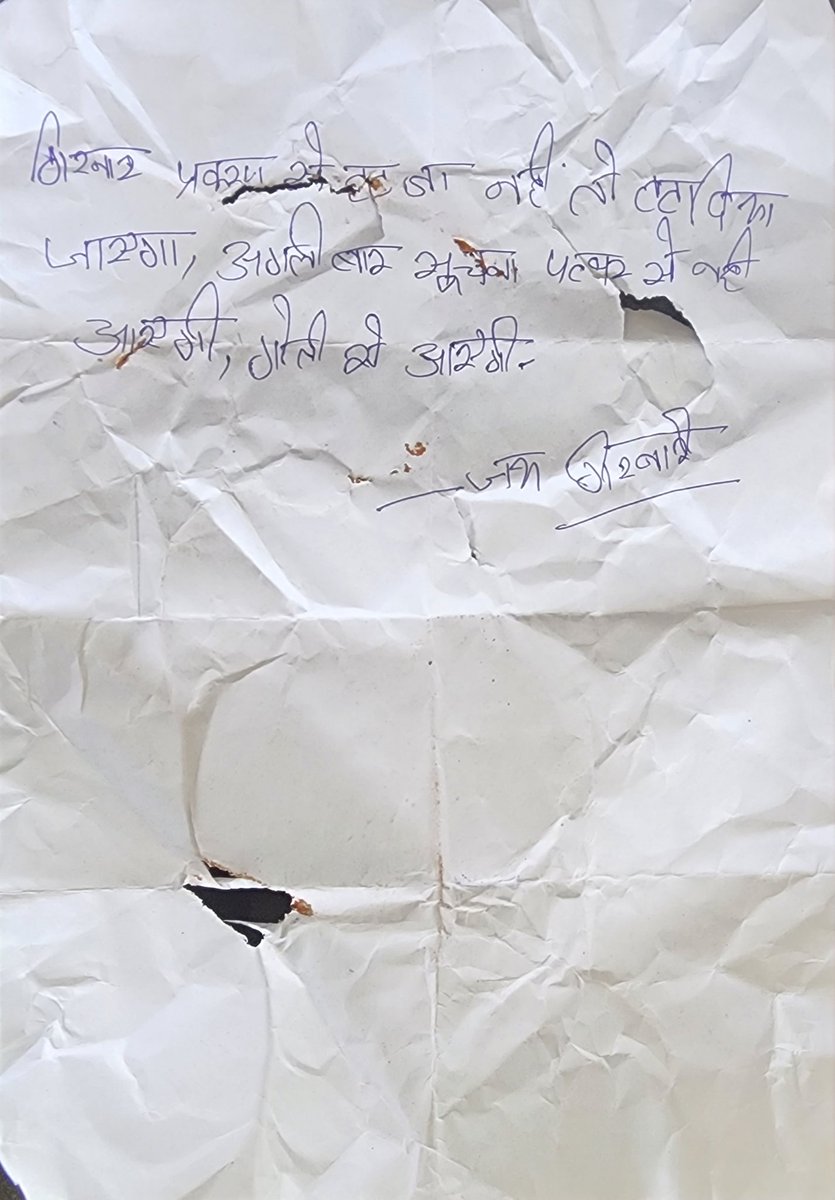 गिरनार प्रकरण से हट जा नहीं तो हटा दिया
जाएगा, अगली बार सूचना पत्थर से नहीं
आएगी, गोली से आएगी.
— जय गिरनारी